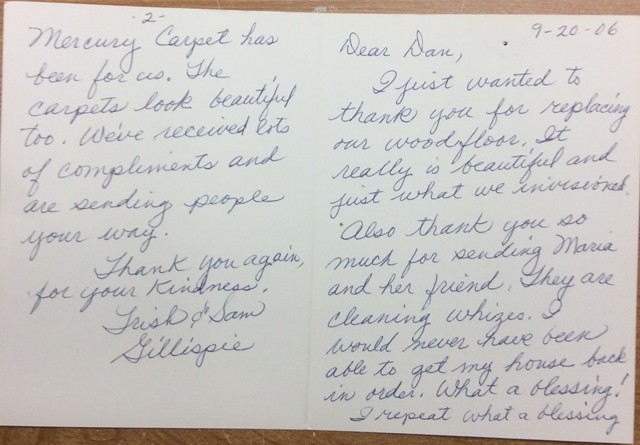 9-20-06
Dear Dan,
I just wanted to
thank you for replacing
our wood floor. It
really is beautiful and
just what we invisioned.
Also thank you so
much for sending Maria
and her friend. They are
cleaning whizes. I
would never have been
able to get my house back
in order. What a blessing!
I repeat what a blessing
-2-
Mercury Carpet has
been for us. The
carpets look beautiful
too. We've received lots
of compliments and
are sending people
your way.
Thank you again,
for your kindness.
Trish & Sam
Gillispie